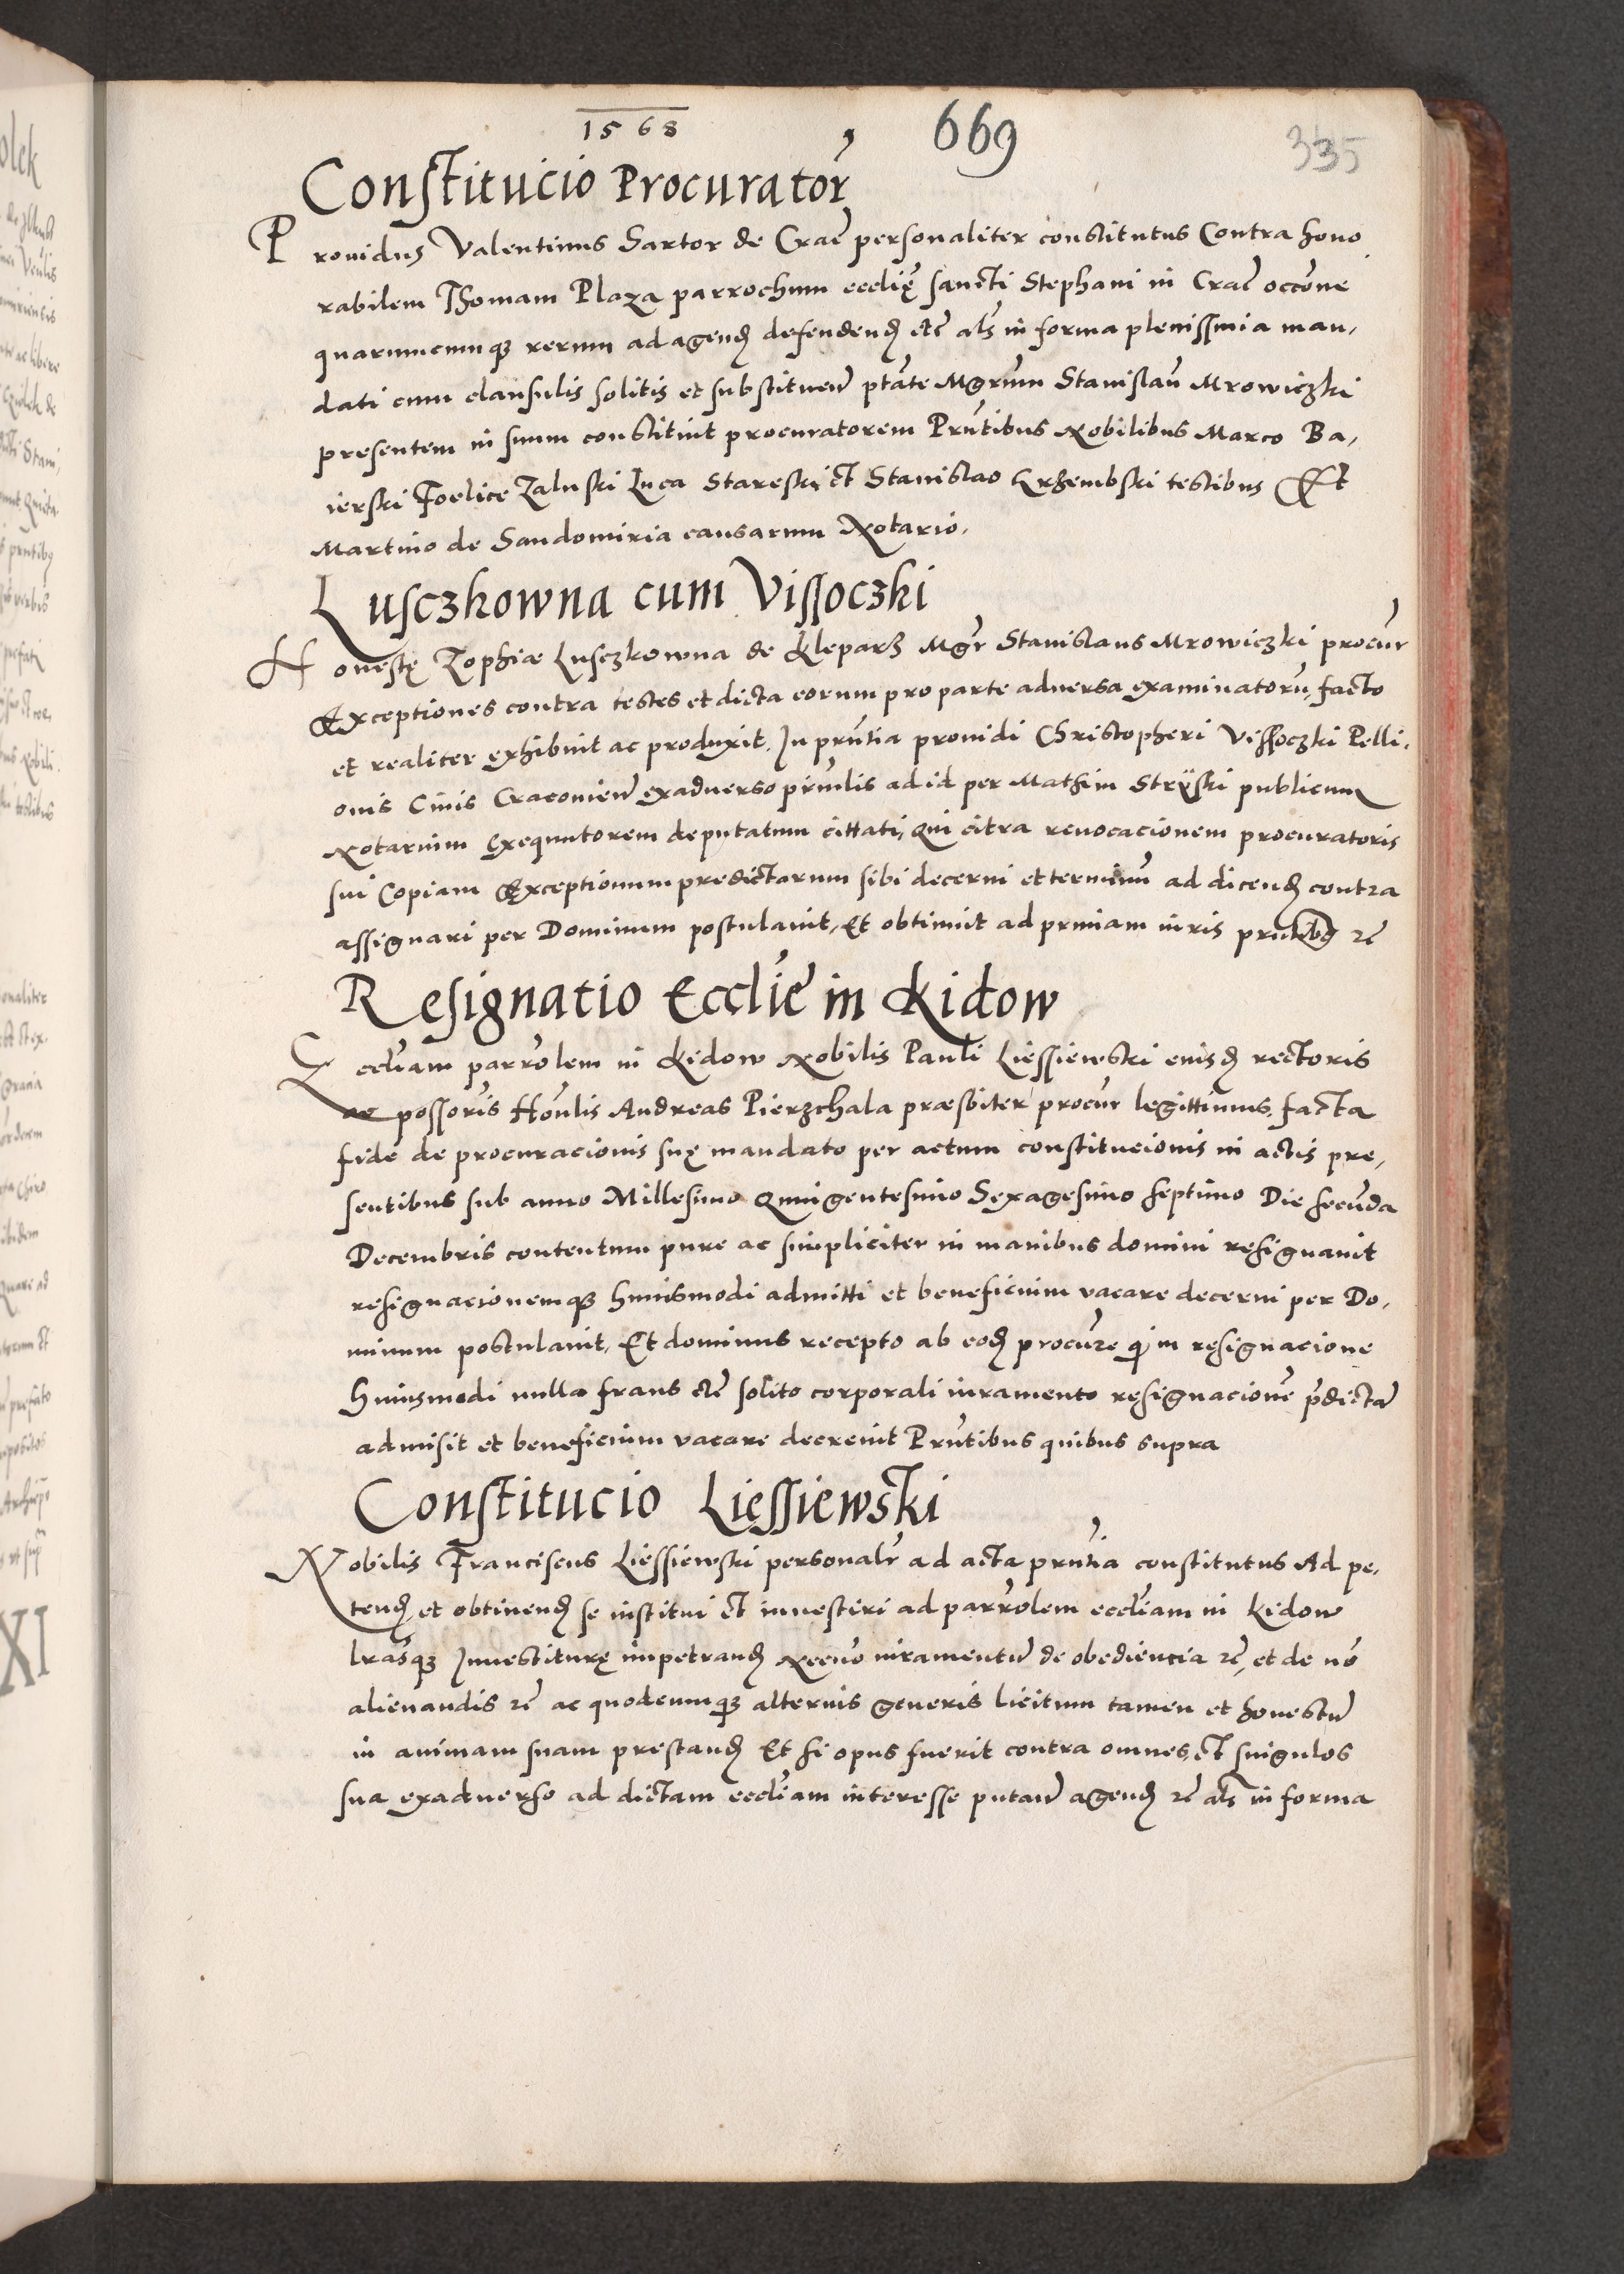 1568
669
335
Constitucio Procurator
Prouidus Valentinus Sartor de Crac̄ personaliter constitutus Contra hono
rabilem Thomam Plaza parrochum ecclię sancti Stephani in Crac̄ occōne
quarumcumq₃ rerum ad agend̄ defendend̄ etc̄ als̄ in forma plenissima man,
dati cum clausulis solitis et substituen̄ ptāte Mgrūm Stanislaū Mrowiczki
presentem in suum constituit procuratorem Prn̄tibus Nobilibus Marco Ba,
ierski Foelice Zaluski Luca Stareski et Stanislao Grzembski testibus Et
Martino de Sandomiria causarum Notario.
Lusczkowna cum Vissoczki
Honestę Zophiæ Lusczkowna de Kleparz Mgr̄ Stanislaus Mrowiczki procur̄
Exceptiones contra testes et dicta eorum pro parte aduersa examinatorū, facto
et realiter exhibuit ac produxit. In prn̄tia prouidi Christopheri Vissoczki Pelli,
onis Ciuis Cracouien̄ exaduerso prin̄lis ad id per Mathim Strÿski publicum
Notarium Exequutorem deputatum cittati, Qui citra reuocacionem procuratoris
sui Copiam Exceptionum predictarum sibi decerni et terminū ad dicend̄ contra
assignari per Dominum postulauit, Et obtinuit ad prmiam iuris prn̄tibg rc̄
Resignatio Ecclie̅ in Kidow
Eccliā̄m parrōlem in Kidow Nobilis Pauli Liessiewski eiusd̄ rectoris
ac possoris̄ Honl̄is Andreas Pierzchala præsbiter procur̄ legittimus, facta
fide de procuracionis suę mandato per actum constitucionis in actis pre,
sentibus sub anno Millesimo Quingentesimo Sexagesimo septimo Die secūda
Decembris contentum pure ac simpliciter in manibus domini resignauit
resignacionemq₃ huiusmodi admitti et beneficium vacare decerni per Do,
minum postulauit, Et dominus recepto ab eod̄ procūre q̄ in resignacione
huiusmodi nulla fraus etc̄ solito corporali iuramento resignacionē p̄dictā
admisit et beneficium vacare decreuit Prn̄tibus quibus supra
Constitucio Liessiewski
Nobilis Franciscus Liessiewski personalr̄ ad acta prn̄tia constitutus Ad pe,
tend̄ et obtinend̄ se institui et inuestiri ad parrōlem eccliā̄m in Kidow
lrāsq₃ Inuestiturę impetrand̄ Necno̅ iuramentū de obediencia rc̄, et de no̅
alienandis rc̄ ac quodcumq₃ alterius generis licitum tamen et honestū
in animam suam prestand̄ Et si opus fuerit contra omnes et singulos
sua exaduerso ad dictam eccliā̄m interesse putan̄ agend̄ rc̄ als̄ in forma